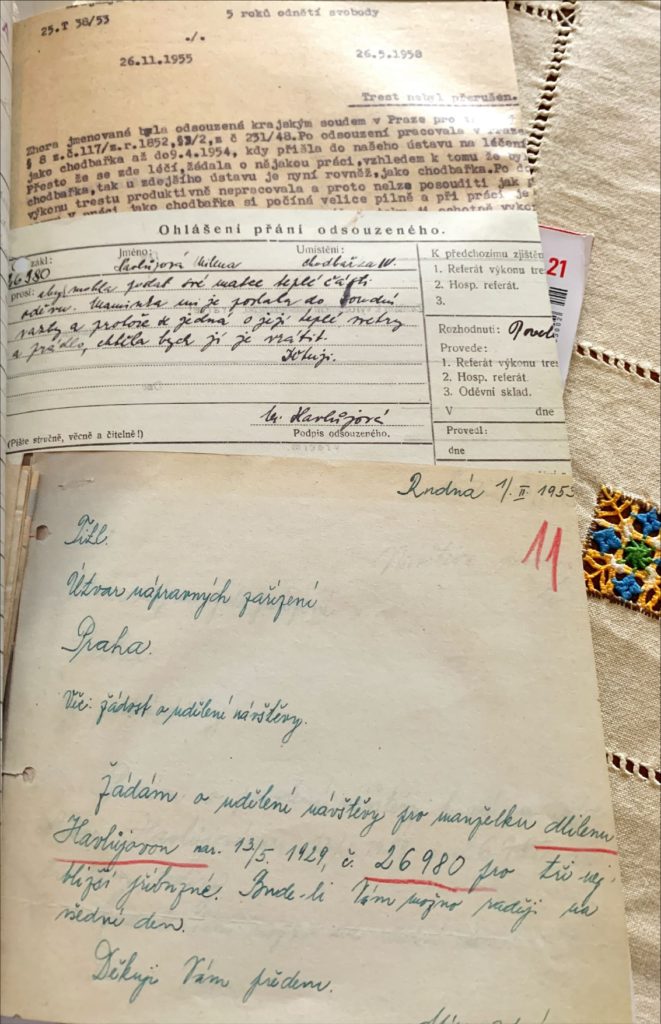 25.T 38/53
5 roků odnětí svobody
./.
26.11.1955 26.5.1958
Trest nebyl přerušen.
Zhora jmenovaná byla odsouzena krajským soudem v Praze pro
§ 8 z.č.117/z.r.1852,§3/2,z č 231/48.Po odsouzení pracovala v
jako chodbařka až do9.4.1954, kdy přišla do našeho ústavu na léčení
Přesto že se zde léčí,žádala o nějakou práci,vzhledem k tomu že by
chodbařka,tak u zdejšího ústavu je nyní rovněž,jako chodbařka.Po
výkonu trestu produktivně nepracovala a proto nelze posouditi jak
v práci, jako chodbařka si počíná velice pilně a při práci je
Ohlášení přání odsouzeného.
zákl: Jméno: Umístění:
26980 Havlůjová Milena chodbařka IV.
prosí: abych mohla podat své matce teplé části
oděvu. Maminka mi je poslala do soudní
vazby a protože se jedná o její teplé svetry
a prádlo, chtěla bych jí je vrátit.
Děkuji.
Havlůjová
(Pište stručně, věcně a čitelně!) Podpis odsouzeného.
K předchozímu zjištěn
1. Referát výkonu tres
2. Hosp. referát.
3.
Rozhodnutí: Povol
Provede:
1. Referát výkonu tres
2. Hosp. referát.
3. Oděvní sklad.
V dne
Provedl:
dne
21
Rudná 1/II. 1955
11
Titl.
Útvar nápravných zařízení
Praha.
Věc: žádost o udělení návštěvy.
Žádám o udělení návštěvy pro manželku Milenu
Havlůjovou nar. 13/5. 1929, č. 26980 pro tři nej-
bližší příbuzné. Bude-li Vám možno raději na
všední den.
Děkuji Vám předem.